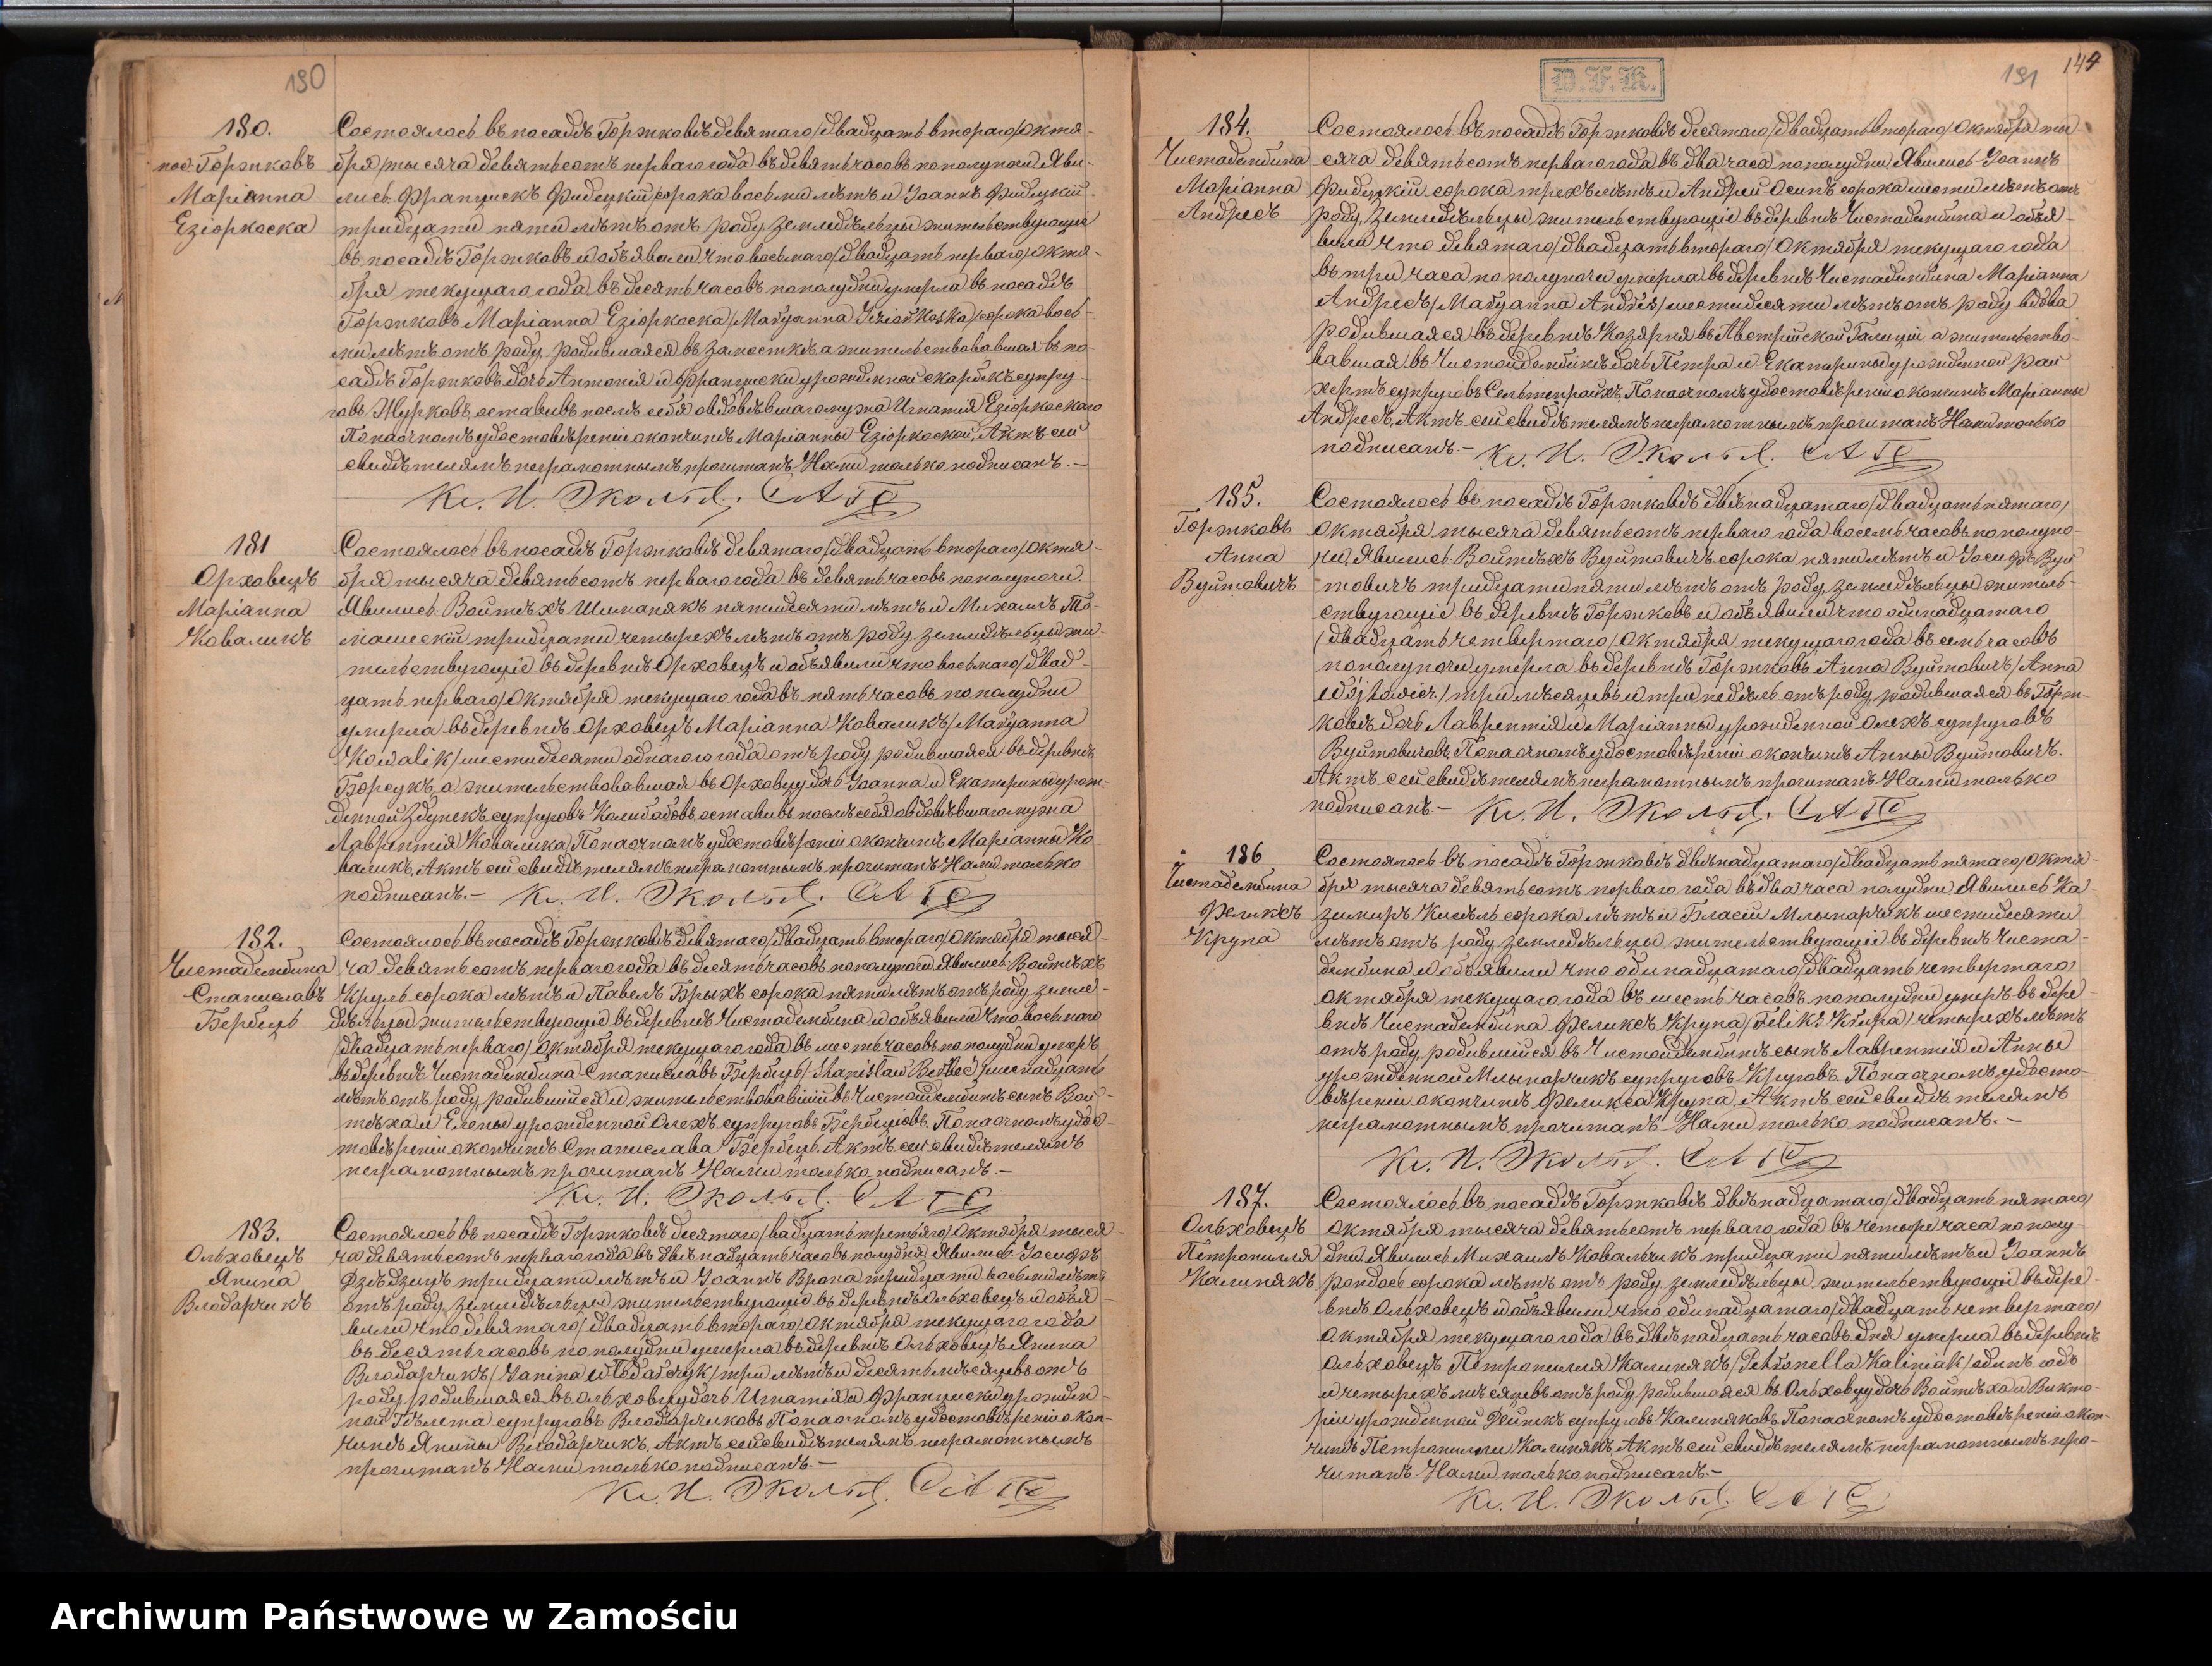 190
180.
пос. Горжковъ
Маріанна
Езіоркоска
Состоялось въ посадѣ Горжковѣ девятаго /двадцать втораго/ Октя-
бря тысяча девятьсотъ перваго года въ девять часовъ пополуночи Яви-
лись Францискъ Фидецкій сорока восьми лѣтъ и Іоаннъ Фидецкій
тридцати пяти лѣтъ отъ роду, земледѣльцы жительствующіе
въ посадѣ Горжковъ и объявили что восьмаго /двадцать перваго/ Октя-
бря текущаго года въ десять часовъ пополудни умерла въ посадѣ
Горжковъ Маріанна Езіоркоска /Maryanna Jeziorkoska/ сорока вось-
ми лѣтъ отъ роду, родившаяся въ Замосткѣ а жительствовавшая въ по-
садѣ Горжковъ дочь Антонія и Франциски урожденной Скорбкъ супру-
говъ Журковъ, оставивъ послѣ себя овдовѣвшаго мужа Игнатія Езіоркоскаго
По наочномъ удостовѣреніи о кончинѣ Маріанны Езіоркоской, Актъ сей
свидѣтелямъ неграмотнымъ прочитанъ Нами только подписанъ.-
181
Орховецъ
Маріанна
Коваликъ
Состоялось въ посадѣ Горжковѣ девятаго /двадцать втораго/ Октя-
бря тысяча девятьсотъ перваго года въ девять часовъ пополуночи.
Явились: Войтѣхъ Шипанякъ пятидесяти лѣтъ и Михаилъ То-
машескій тридцати четырехъ лѣтъ отъ роду, земледѣльцы жи-
тельствующіе въ деревнѣ Орховецъ и объявили что восьмаго /двад-
цать перваго/ Октября текущаго года въ пять часовъ пополудни
умерла въ деревнѣ Орховецъ Маріанна Коваликъ /Maryanna
Kowalik/ шестидесяти однаго года отъ роду родившаяся въ деревнѣ
Борсукъ, а жительствовавшая въ Орховцу дочь Іоанна и Екатерины урож-
денной Здунекъ супруговъ Колибабовъ, оставивъ послѣ себя овдовѣвшаго мужа
Лаврентія Ковалика, По наочномъ удостовѣреніи о кончинѣ Маріанны Ко-
валикъ, Актъ сей свидѣтелямъ неграмотнымъ прочитанъ Нами только
подписанъ.-
182.
Чистадембина
Станиславъ
Бербець
Состоялось въ посадѣ Горжковѣ девятаго /двадцать втораго/ Октября тыся-
ча девятьсотъ перваго года въ десять часовъ пополуночи Явились: Войтѣхъ
Круль сорока лѣтъ и Павелъ Брыхъ сорока пяти лѣтъ отъ роду, земле-
дѣльцы жительствующіе въ деревнѣ Чистадембина и объявили что восьмаго
/двадцать перваго/ Октября текущаго года въ шесть часовъ пополудни умеръ
въ деревнѣ Чистадембина Станиславъ Бербець /Stanisław Berbeć/ шестнадцать
лѣтъ отъ роду, родившійся и жительствовавшій въ Чистойдембинѣ сынъ Вой-
тѣха и Елены урожденной Олехъ супруговъ Бербецювъ, По наочномъ удос-
товѣреніи о кончинѣ Станислава Бербець, Актъ сей свидѣтелямъ
неграмотнымъ прочитанъ Нами только подписанъ.-
183.
Ольховецъ
Янина
Влодарчикъ
Состоялось въ посадѣ Горжковѣ десятаго /вадцать третьяго/ Октября тыся-
ча девятьсотъ перваго года въ двѣнадцать часовъ полудня Явились: Іосифъ
Дзѣдзицъ тридцати лѣтъ и Іоаннъ Врона тридцати восьми лѣтъ
отъ роду, земледѣльцы жительствующіе въ деревнѣ Ольховецъ и объя-
вили что девятаго /двадцать втораго/ Октября текущаго года
въ десять часовъ пополудни умерла въ деревнѣ Ольховецъ Янина
Влодарчикъ /Janina Włodarczyk/ три лѣтъ и десять мѣсяцевъ отъ
роду, родившаяся въ Ольховцу дочь Игнатія и Франциски урожден-
ной Гѣлета супруговъ Влодарчиковъ По наочномъ удостовѣреніи о кон-
чинѣ Янины Влодарчикъ, Актъ сей свидѣтелямъ неграмотнымъ
прочитанъ Нами только подписанъ.-
D.F.K.
191
144
184.
Чистадембина
Маріанна
Андресъ
Состоялось въ посадѣ Горжковѣ десятаго /двадцать втораго/ Октября ты-
сяча девятьсотъ перваго года въ два часа пополудни, Явились Іоаннъ
Фидецкій сорока трехъ лѣтъ и Андрей Осипъ сорока шести лѣтъ отъ
роду, земледѣльцы жительствующіе въ деревнѣ Чистадембина и объя-
вили что девятаго /двадцать втораго/ Октября текущаго года
въ три часа пополуночи умерла въ деревнѣ Чистадембина Маріанна
Андресъ /Maryanna Andres/ шестидесяти лѣтъ отъ роду вдова
родившаяся въ деревнѣ Козярня въ Австрійской Галиціи а жительство-
вавшая въ Чистойдембинѣ дочь Петра и Екатерины урожденной Рай
хертъ супруговъ По наочномъ удостовѣреніи о кончинѣ Маріанны
Андресъ, Актъ сей свидѣтелямъ неграмотнымъ прочитанъ Нами только
подписанъ.-
185.
Горжковъ
Анна
Вуйтовичъ
Состоялось въ посадѣ Горжковѣ двѣнадцатаго /двадцать пятаго/
Октября тысяча девятьсотъ перваго года восемь часовъ пополуно-
чи, Явились: Войтѣхъ Вуйтовичъ сорока пяти лѣтъ и Іосифъ Вуй-
товичъ тридцати пяти лѣтъ отъ роду, земледѣльцы житель-
ствующіе въ деревнѣ Горжковъ и объявили что одинадцатаго
/двадцать четвертаго/ Октября текущаго года въ семь часовъ
пополуночи умерла въ деревнѣ Горжковъ Анна Вуйтовичъ /Anna
Wójtowicz/ три мѣсяцевъ и три недѣль отъ роду, родившаяся въ Горж-
ковѣ дочь Лаврентія и Маріанны урожденной Олехъ супруговъ
Вуйтовичовъ, По наочномъ удостовѣреніи о кончинѣ Анны Вуйтовичъ.
Актъ сей свидѣтелямъ неграмотнымъ прочитанъ Нами только
подписанъ.-
186
Чистадембина
Феликсъ
Крупа
Состоялось въ посадѣ Горжковѣ двѣнадцатаго /двадцать пятаго/ Октя-
бря тысяча девятьсотъ перваго года въ два часа полудни Явились Ка-
зимиръ Кисѣль сорока лѣтъ и Власій Млынарчикъ шестидесяти
лѣтъ отъ роду, земледѣльцы жительствующіе въ деревнѣ Чиста-
дембина и объявили что одинадцатаго /двадцать четвертаго/
Октября текущаго года въ шесть часовъ пополудни умеръ въ дере-
внѣ Чистадембина Феликсъ Крупа /Feliks Krupa/ четырехъ лѣтъ
отъ роду, родившійся въ Чистойдембинѣ сынъ Лаврентія и Анны
урожденной Млынарчикъ супруговъ Круповъ. По наочномъ удосто-
вѣреніи о кончинѣ Феликса Крупа, Актъ сей свидѣтелямъ
неграмотнымъ прочитанъ Нами только подписанъ.-
187.
Ольховецъ
Петронилля
Калинякъ
Состоялось въ посадѣ Горжковѣ двѣнадцатаго /двадцать пятаго/
Октября тысяча девятьсотъ перваго года въ четыре часа пополу-
дни, Явились Михаилъ Ковальчикъ тридцати пяти лѣтъ и Іоаннъ
сорока лѣтъ отъ роду, земледѣльцы жительствующіе въ дере-
внѣ Ольховецъ и объявили что одинадцатаго /двадцать четвертаго/
Октября текущаго года въ двѣнадцать часовъ дня умерла въ деревнѣ
Ольховецъ Петронилля Калинякъ /Petronella Kaliniak/ одинъ годъ
и четырехъ мѣсяцевъ отъ роду, родившаяся въ Ольховцу дочь Войтѣха и Викто-
ріи урожденной супруговъ Калиняковъ, По наочномъ удостовѣреніи о кон-
чинѣ Петронилли Калинякъ, Актъ сей свидѣтелямъ неграмотнымъ про-
читанъ Нами только подписанъ.-
Archiwum Państwowe w Zamościu